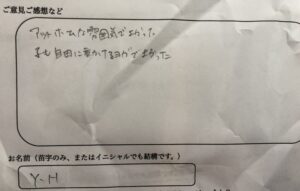 ご意見ご感想など
アットホームな雰囲気でよかった
子も自由に動かせるヨガでよかった
お名前（苗字のみ、またはイニシャルでも結構です。）
Y-H